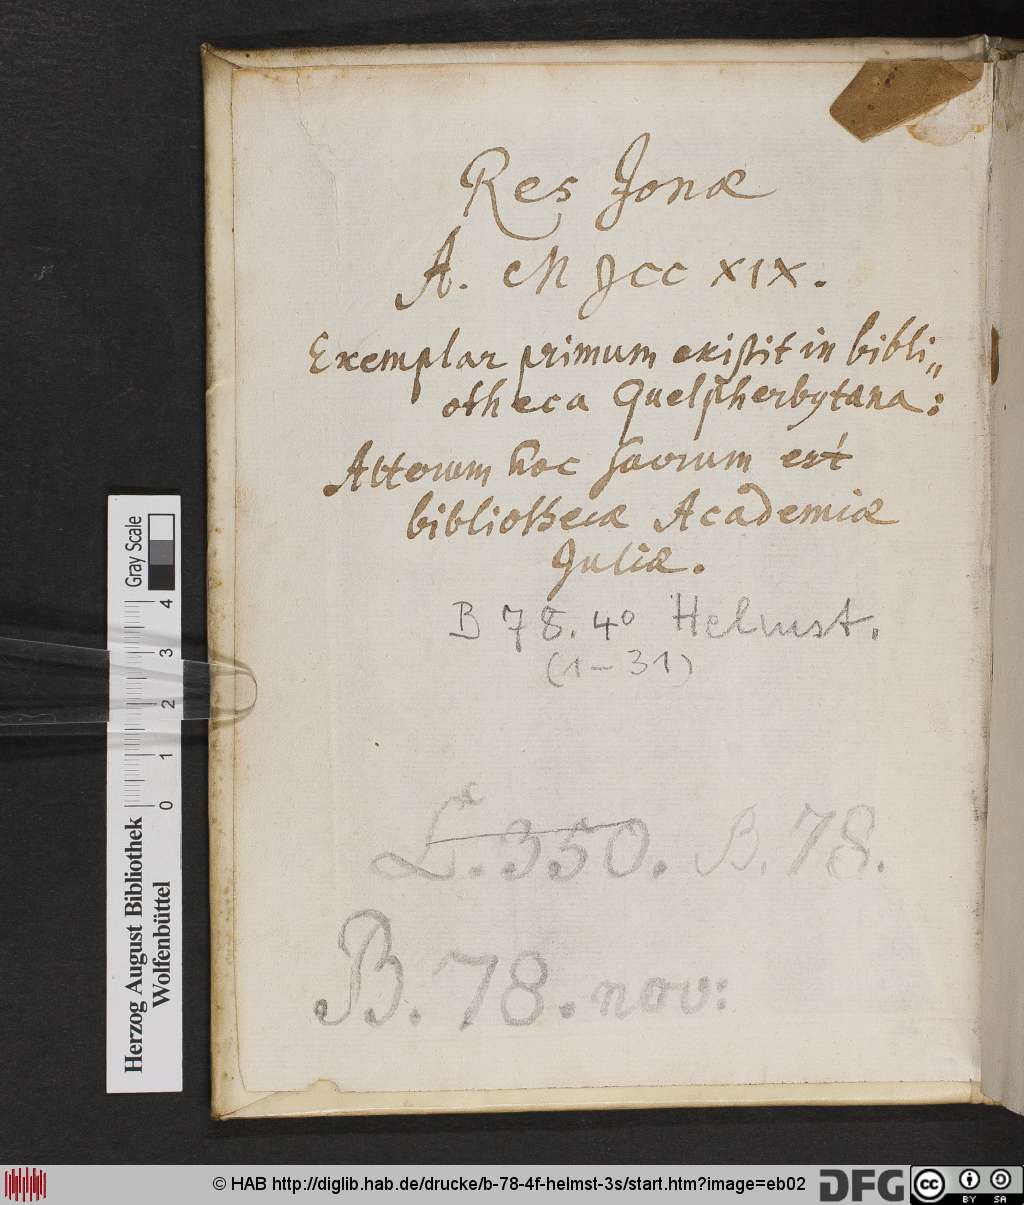 Res Jonæ
A. M DCC XIX.
Exemplar primum existit in bibli„
otheca Guelpherbytana:
Alterum hoc sacrum est
bibliothecæ Academiæ
Juliæ.
B 78. 4º Helmst.
(1-31)
L. 350. B. 78.
B. 78. nov:
Herzog August Bibliothek
Wolfenbüttel
0 1 2 3 4
Gray Scale
© HAB http://diglib.hab.de/drucke/b-78-4f-helmst-3s/start.htm?image=eb02
DFG
cc BY SA